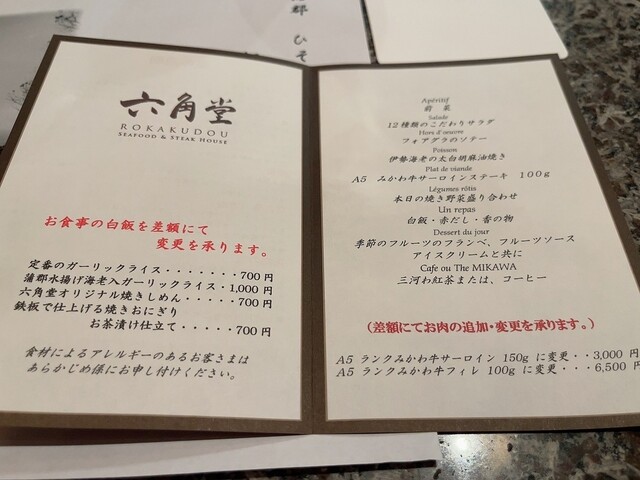 六角堂
ROKAKUDOU
SEAFOOD & STEAK HOUSE
お食事の白飯を差額にて
変更を承ります。
定番のガーリックライス・・・・・・・700円
蒲郡水揚げ海老入ガーリックライス・1,000円
六角堂オリジナル焼きしめん・・・・・700円
鉄板で仕上げる焼きおにぎり
お茶漬け仕立て・・・・・700円
食材によるアレルギーのあるお客さまは
あらかじめ係にお申し付けください。
Apéritif
前菜
Salade
12種類のこだわりサラダ
Hors d'oeuvre
フォアグラのソテー
Poisson
伊勢海老の太白胡麻油焼き
Plat de viande
A5 みかわ牛サーロインステーキ 100g
Légumes rôtis
本日の焼き野菜盛り合わせ
Un repas
白飯・赤だし・香の物
Dessert du jour
季節のフルーツのフランベ、フルーツソース
アイスクリームと共に
Cafe ou The MIKAWA
三河わ紅茶または、コーヒー
（差額にてお肉の追加・変更を承ります。）
A5 ランクみかわ牛サーロイン 150g に変更・・3,000円
A5 ランクみかわ牛フィレ 100g に変更・・・6,500円